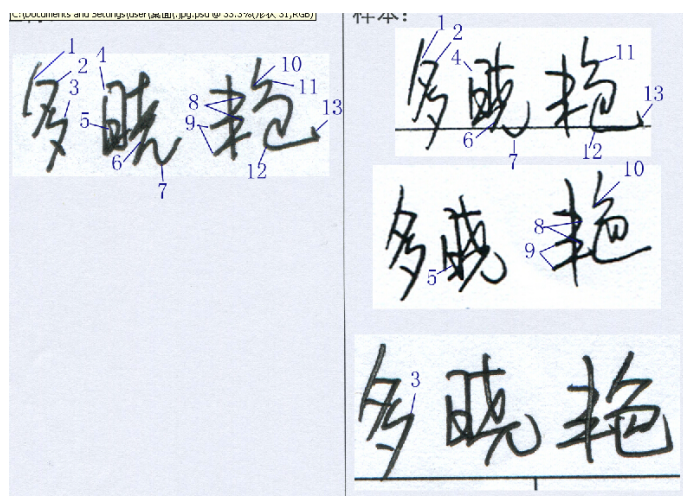 C:\Documents and Settings\user\桌面\.jpg.psd @ 33.3%(RGB)
样本:
1
2
3
4
5
6
7
8
9
10
11
12
13
多晓艳
1
2
4
6
7
11
12
13
多晓艳
5
8
9
10
多晓艳
3
多晓艳